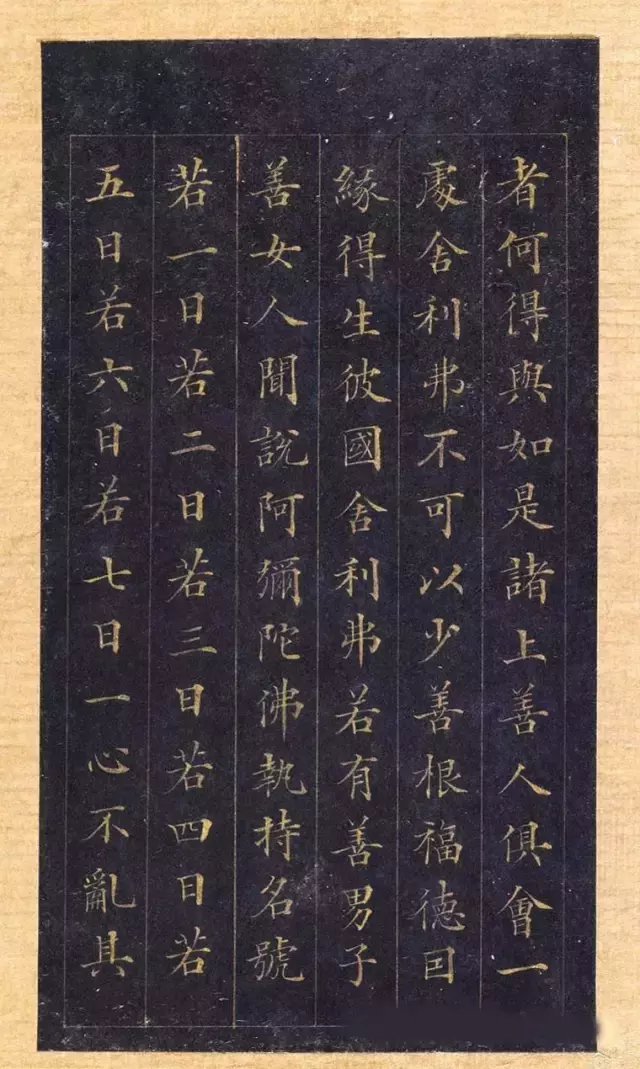 者何得與如是諸上善人俱會一
處舍利弗不可以少善根福德囙
緣得生彼國舍利弗若有善男子
善女人聞說阿彌陀佛執持名號
若一日若二日若三日若四日若
五日若六日若七日一心不亂其